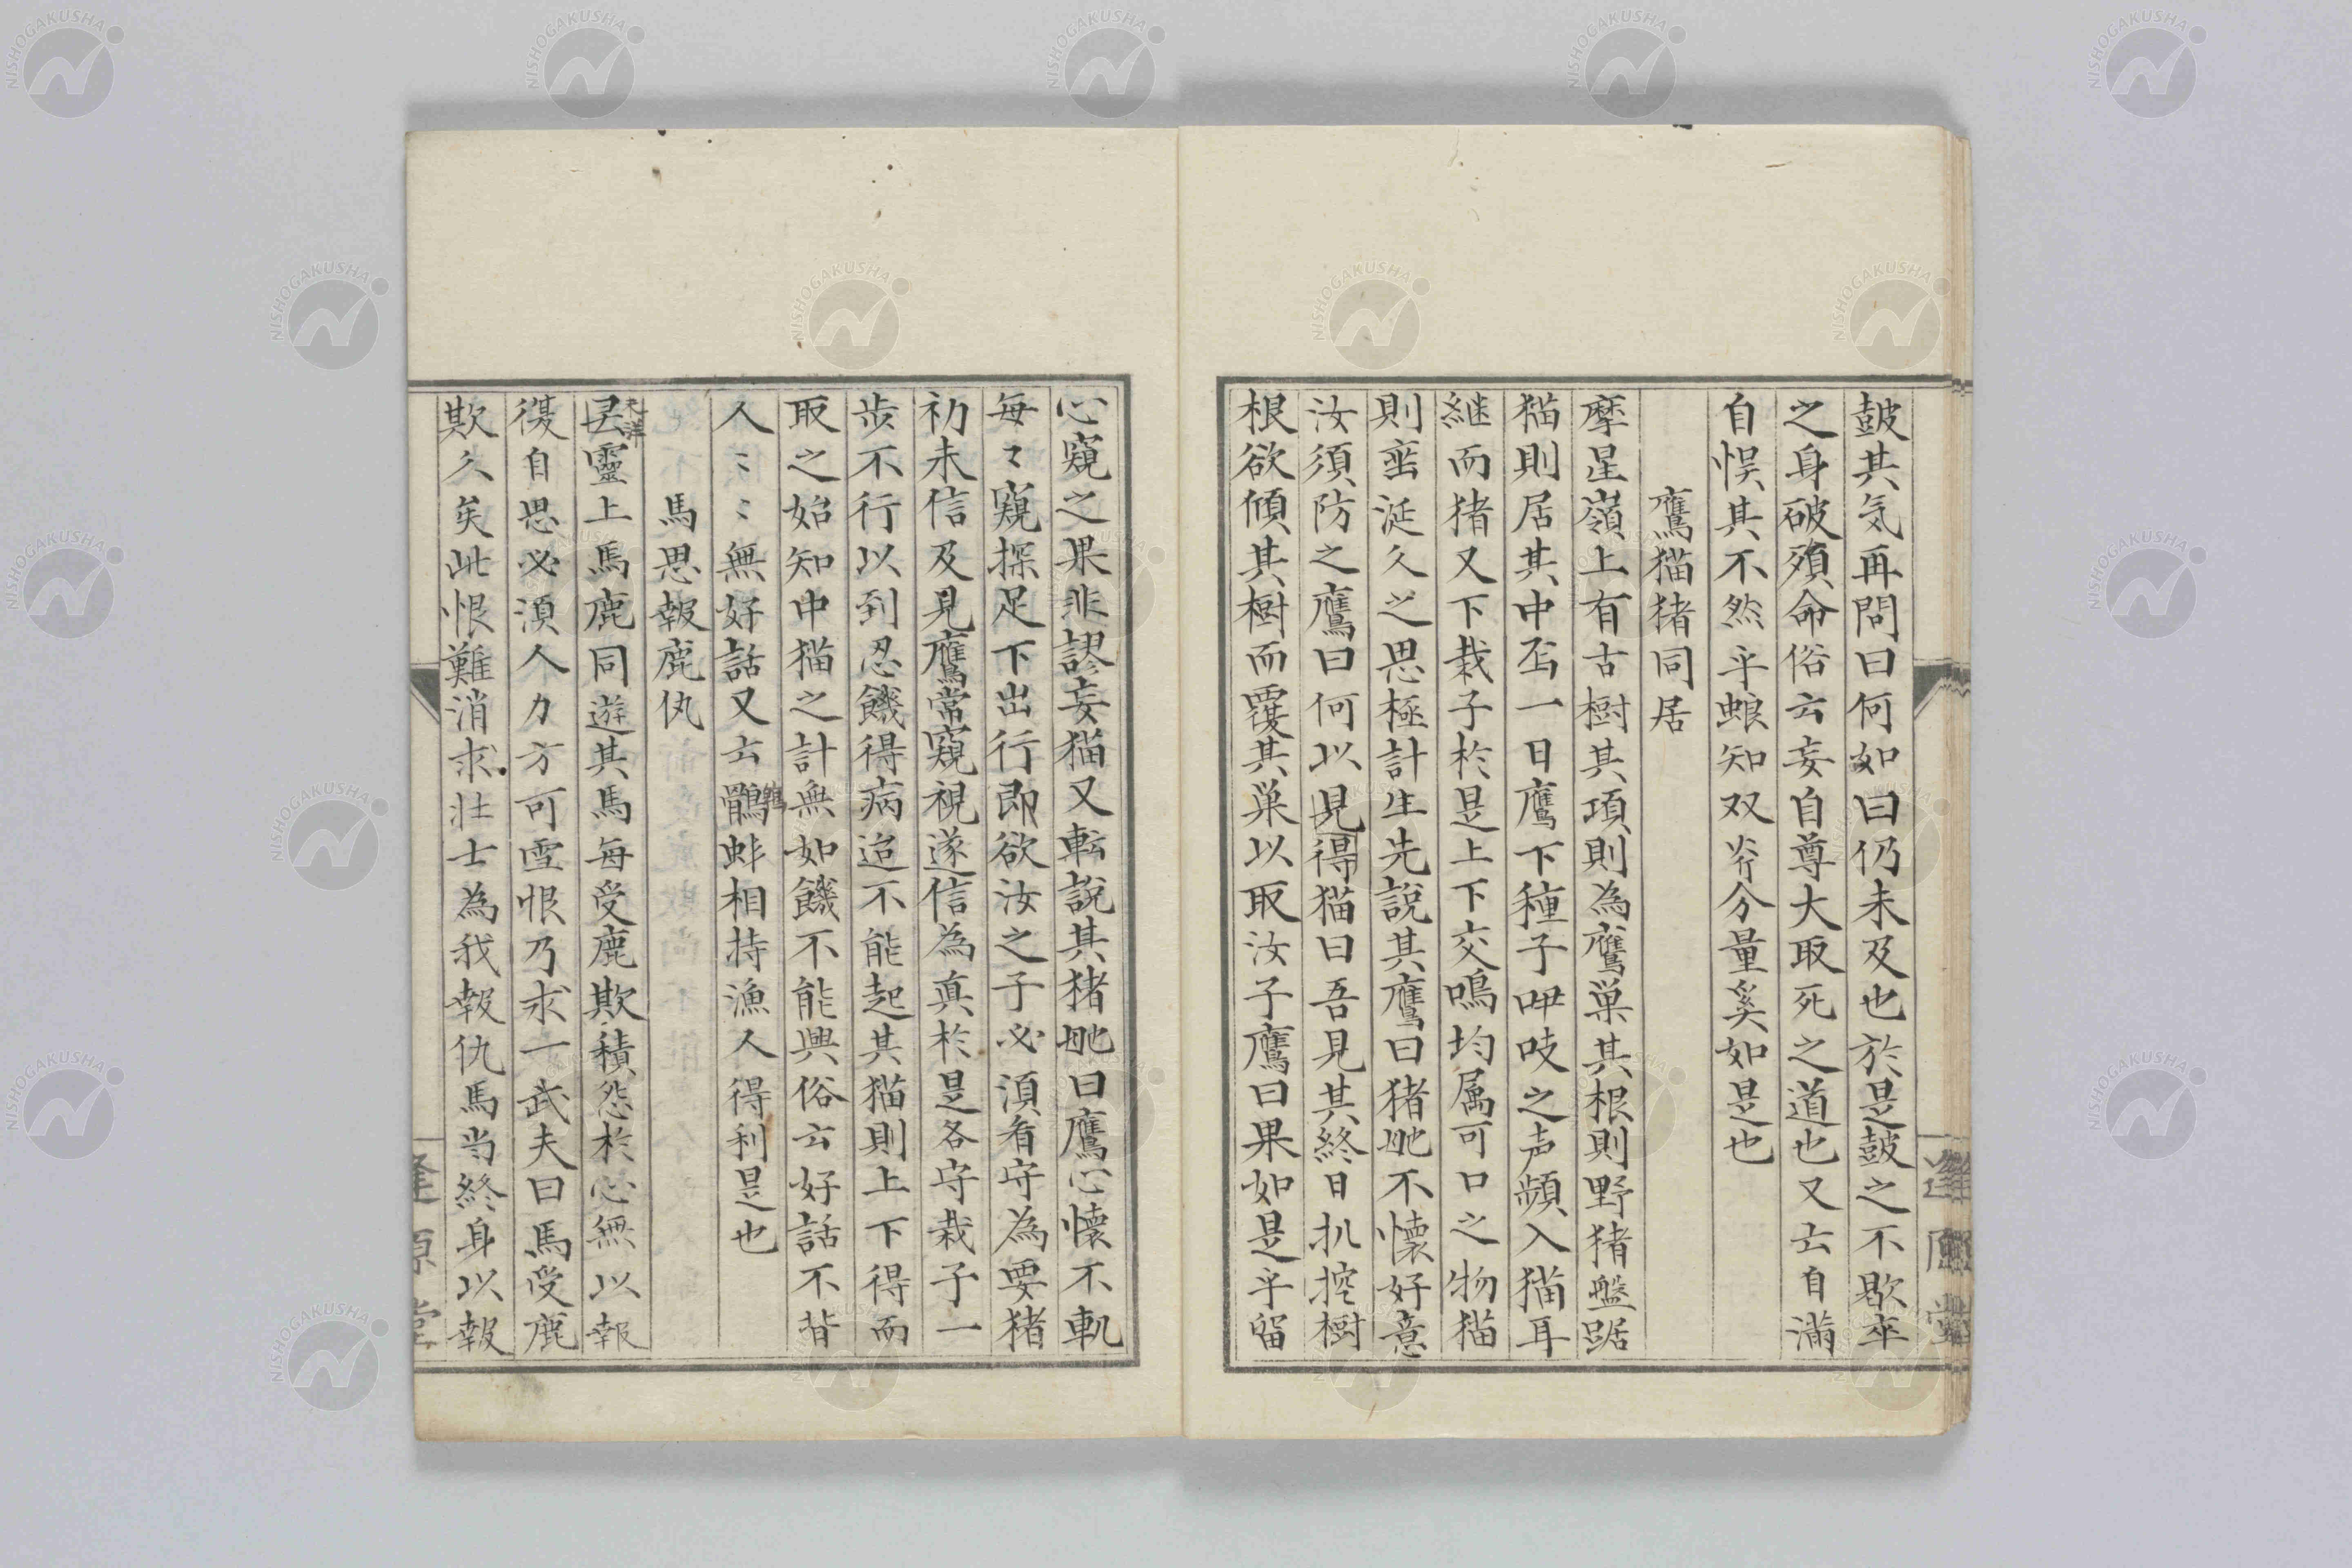 皷其気再問曰何如曰仍未及也於是皷之不歇卒
之身破殞命俗云妄自尊大取死之道也又云自滿
自悞其不然乎螅知双斧分量奚如是也
鷹猫猪同居
摩星嶺上有古樹其項則為鷹巢其根則野猪盤踞
猫則居其中臿一日鷹下種子呷吱之声頻入猫耳
継而猪又下栽子於是上下交鳴均属可口之物猫
則垂涎久之思極計生先説其鷹曰猪虵不懷好意
汝須防之鷹曰何以見得猫曰吾見其終日扒挖樹
根欲傾其樹而覆其巢以取汝子鷹曰果如是乎留
心窺之果非謬妄猫又転説其猪虵曰鷹心懷不軌
每々窺探足下出行即欲汝之子必須看守為要猪
初未信及見鷹常窺視遂信為真於是各守栽子一
步不行以到忍饑得病迨不能起其猫則上下得而
取之始知中猫之計無如饑不能興俗云好話不背
人〻〻無好話又云鷸蚌相持漁人得利是也
馬思報鹿仇
云靈上馬鹿同遊其馬每受鹿欺積怨於心無以報
復自思必須人力方可雪恨乃求一武夫曰馬受鹿
欺久矣此恨難消求壮士為我報仇馬当終身以報
逢原堂
NISHOGAKUSHA